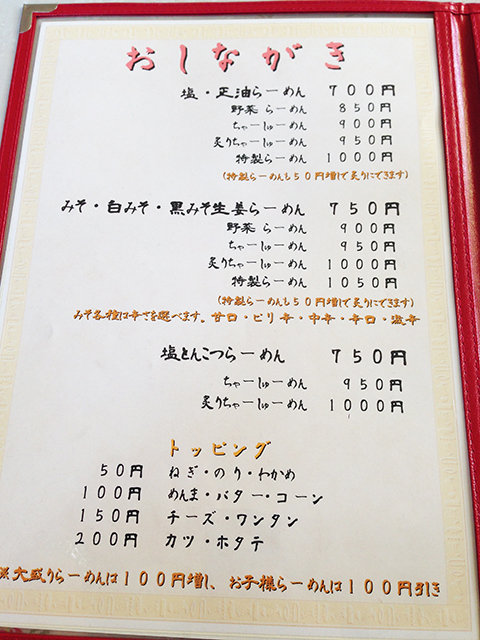 おしながき
塩・正油らーめん 700円
野菜 らーめん 850円
ちゃーしゅーめん 900円
炙りちゃーしゅーめん 950円
特製らーめん 1000円
(特製らーめんも50円増しで炙りにできます)
みそ・白みそ・黒みそ生姜らーめん 750円
野菜 らーめん 900円
ちゃーしゅーめん 950円
炙りちゃーしゅーめん 1000円
特製らーめん 1050円
(特製らーめんも50円増しで炙りにできます)
みそ各種は辛さを選べます。甘口・ピリ辛・中辛・辛口・激辛
塩とんこつらーめん 750円
ちゃーしゅーめん 950円
炙りちゃーしゅーめん 1000円
トッピング
50円 ねぎ・のり・わかめ
100円 めんま・バター・コーン
150円 チーズ・ワンタン
200円 カツ・ホタテ
※大盛りらーめんは100円増し、お子様らーめんは100円引き